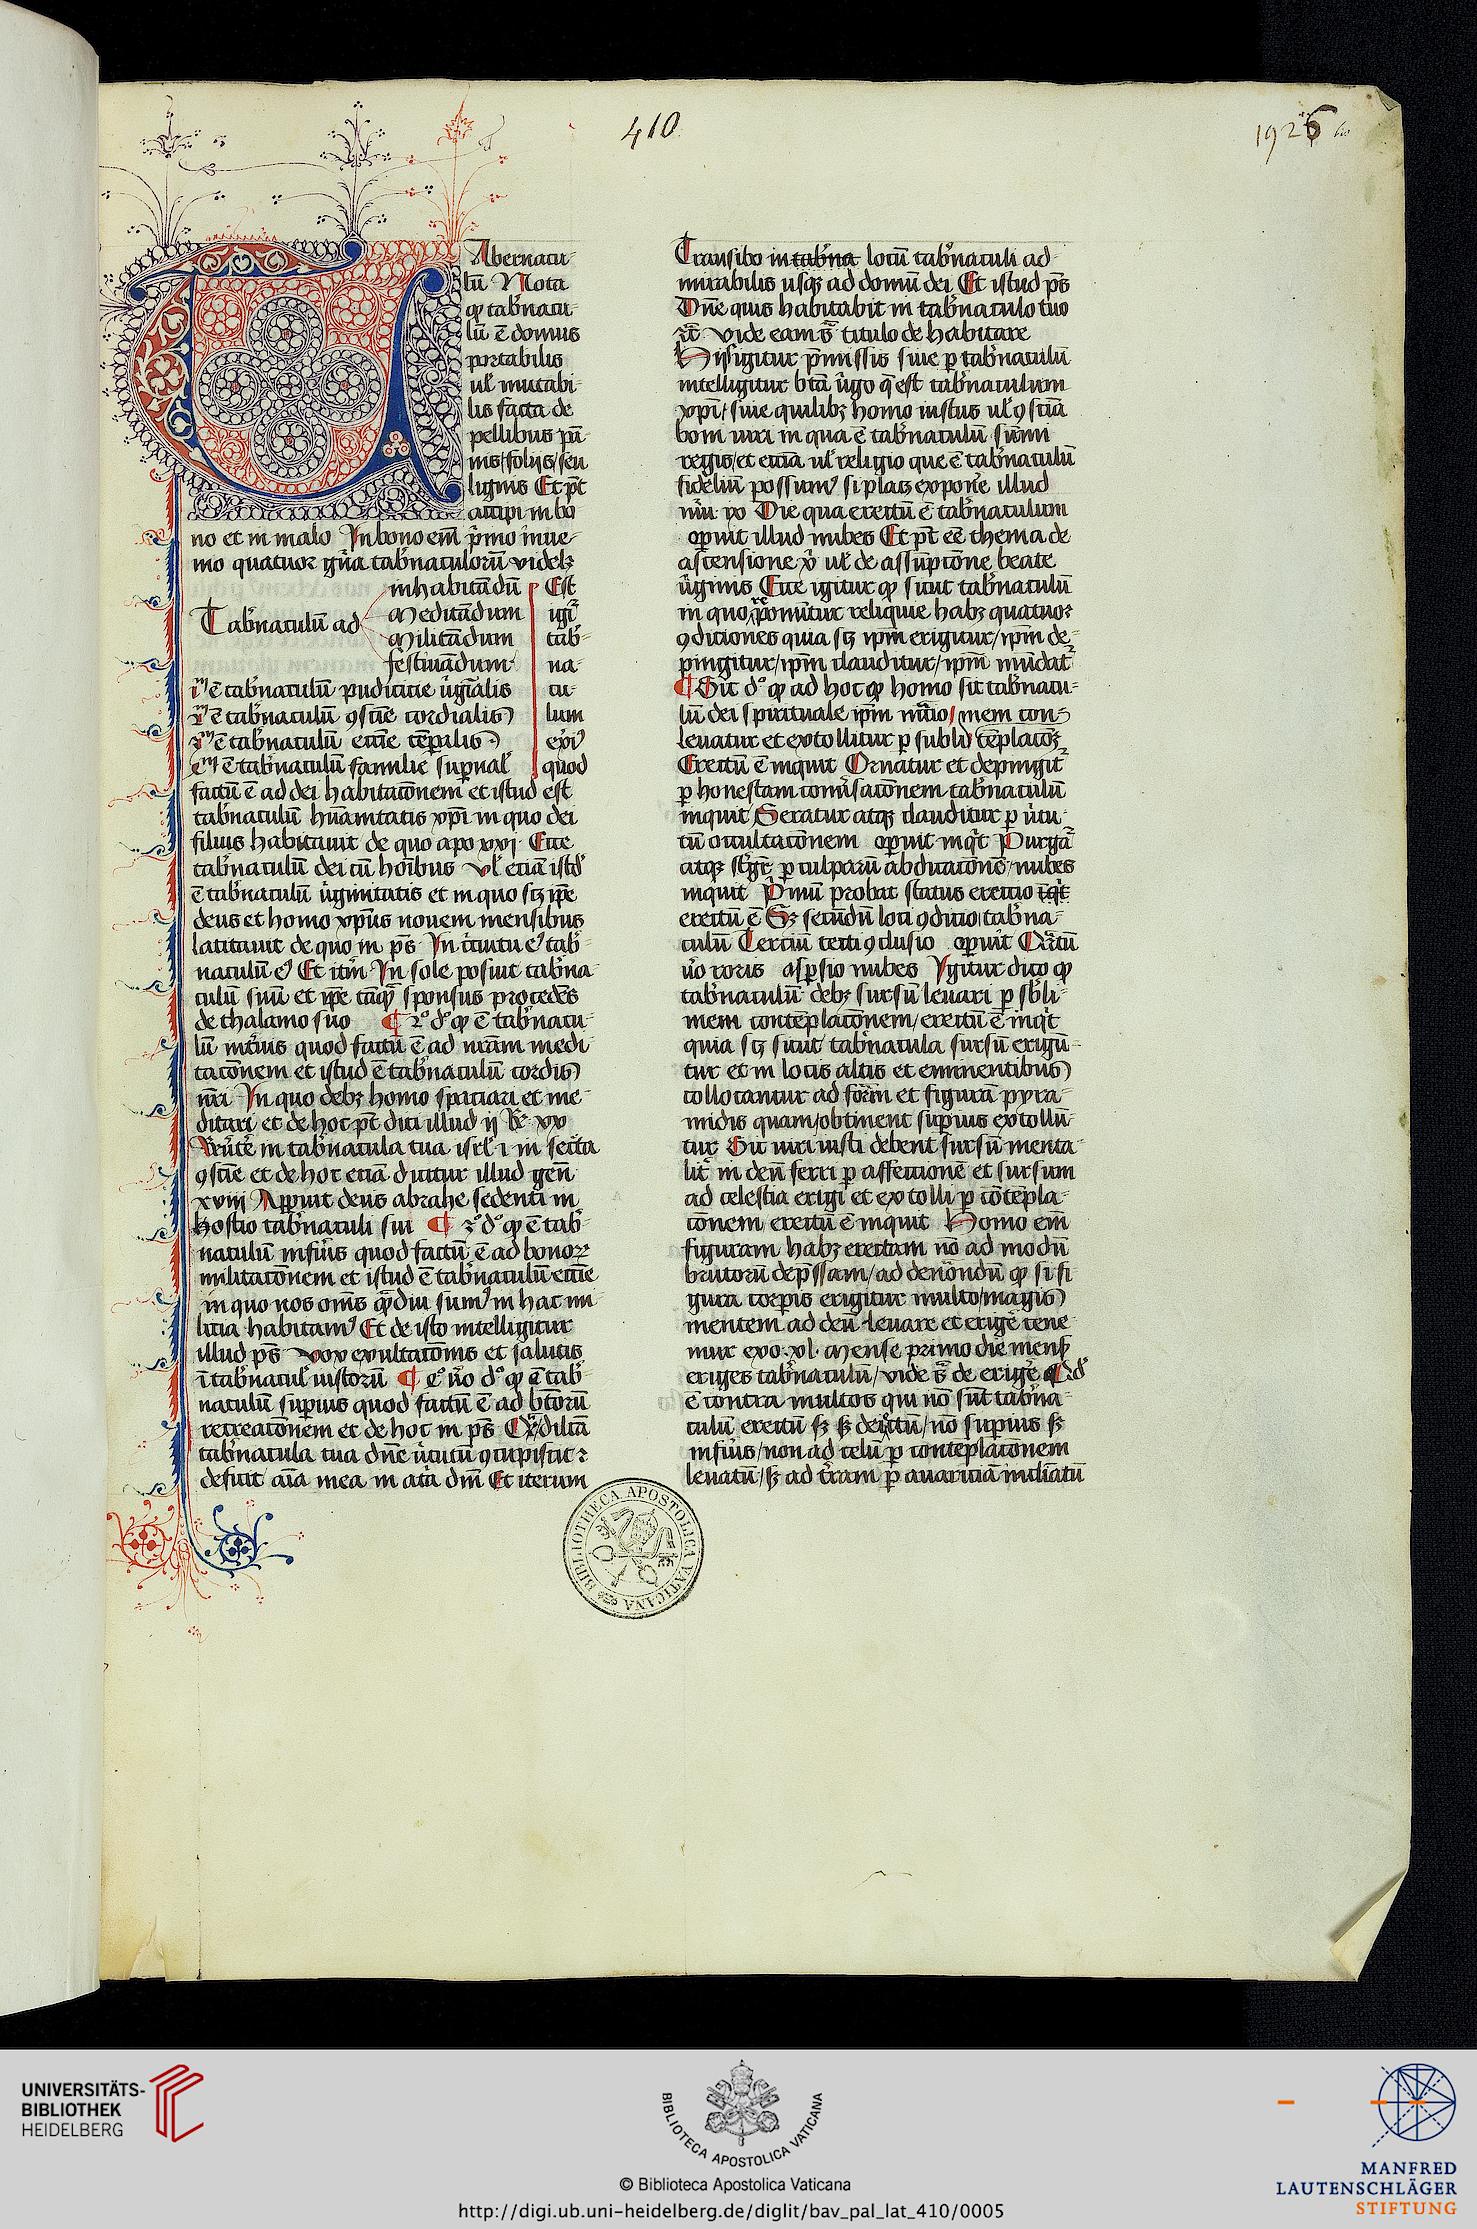 410
1926
Abernacu-
lū Nota
ꝙ tab̓nacu-
lū ē domus
portabilis
ul̓ mutabi-
lis facta de
pellibus pā-
nis/folijs/seu
lignis Et pt̄
accipi in bo
no et in malo In bono em̄ p̓mo inue-
nio quatuor gn̄a tab̓naculorū videlꝫ
Tab̓naculū ad
inhabitādū
Meditādum
Militādum
festiuādum
Est
igr̄
tab̓-
na-
cu-
lum
quod
ē tab̓naculū pudicicie v̓gīalis
ē tab̓naculū ꝯsciē cordialis
ē tab̓naculū eccīe tēp̄alis
ē tab̓naculū familie sup̄nal̓
factū ē ad dei habitacōnem et istud est
tab̓naculū hūanitatis xp̄i in quo dei
filius habitauit de quo apo xxj Ecce
tab̓naculū dei cū hoībus Vl̓ eciā istd̓
ē tab̓naculū v̓ginitatis et in quo scꝫ ip̄e
deus et homo xp̄us nouem mensibus
latitauit de quo in ps̄ In circuitu eꝰ tab̓-
naculū eꝰ Et itm̄ In sole posuit tab̓na-
culū suū et ip̄e tāqȝ sponsus procedēs
de thalamo suo ¶ 2º dº ꝙ ē tab̓nacu-
lū int̓ius quod factū ē ad nr̄am medi-
tacōnem et istud ē tab̓naculū cordis
nr̄i In quo debꝫ homo spaciari et me-
ditari et de hoc pt̄ dici illud ij Re xx
in tab̓nacula tua isrl̓ i in secreta
ꝯsciē et de hoc eciā dicitur illud gen̄
xviij Apparuit deus abrahe sedenti in
hostio tab̓naculi sui ¶ 3º dº ꝙ ē tab̓-
naculū inferius quod factū ē ad bonoꝝ
militacōnem et istud ē tab̓naculū eccīe
in quo nos om̄s qm̄diu sumꝰ in hac mi-
licia habitamꝰ Et de isto intelligitur
illud ps̄ vox exultacōnis et salutis
ī tab̓nacul̓ iustorū ¶ 4º v̓o dº ꝙ ē tab̓-
naculū sup̄ius quod factū ē ad bt̄orū
recreacōnem et de hoc in ps̄ Qm̄ dilcā
tab̓nacula tua dn̄e v̓tutū ꝯcupiscit ⁊
deficit aīa mea in atīa dn̄i Et iterum
Transibo in tab̓na locū tab̓naculi ad-
mirabilis usqȝ ad domū dei Et istud ps̄
Dn̄e quis habitabit in tab̓naculo tuo
⁊c̄ vide eam s̄ titulo de habitare
Hijs igitur p̄missis siue ꝑ tab̓naculū
intelligitur btā v̓go q̄ est tab̓naculum
xp̄i/siue quilibꝫ homo iustus ul̓ ꝯsciā
boni viri in qua ē tab̓naculū sūmi
regis/et eciā ul̓ religio que ē tab̓naculū
fideliū possumꝰ si placꝫ expone̓ illud
nūi ix Die qua erectū ē tab̓naculum
opuit illud nubes Et pt̄ ee̓ thema de
ascensione x̓ ul̓ de assūpcōne beate
v̓ginis Ecce igitur ꝙ sicut tab̓naculū
in quo reponūtur reliquie habꝫ quatuor
ꝯdiciones quia scꝫ ip̄m erigitur/ip̄m de-
pingitur/ip̄m clauditur/ip̄m mūdat̄
¶ Sic dº ꝙ ad hoc ꝙ homo sit tab̓nacu-
lū dei spirituale
leuatur et extollitur ꝑ
Erectū ē inquit Ornatur et depingit̄
ꝑ honestam conu̓sacōnem tab̓naculū
inquit Seratur atqȝ clauditur ꝑ v̓tu-
tū occultacōnem opuit inqt̓ Purgat̄
atqȝ ꝑ culparū abdicacōnē/nubes
inquit P̓mū probat status erectio
erectū ē Sꝫ secūdū loci ꝯdicio tab̓na-
culū Terciū tecti ꝯclusio opuit Qr̓tū
v̓o roris aspsio nubes Igitur dico ꝙ
tab̓naculū debꝫ sursū leuari ꝑ sbli-
mem contēplacōnem/erectū ē inqt̓
quia scꝫ sicut tab̓nacula sursū erigū-
tur et in locis altis et eminentibus
collocantur ad formā et figurā pyra-
midis quam/obtinent sup̄ius extollū-
tur Sic viri iusti debent sursū menta-
lit̄ in deū ferri ꝑ affectionē et sursum
ad celestia erigi et extolli ꝑ cōtēpla-
cōnem erectū ē inquit Homo em̄
figuram habꝫ erectam nō ad modū
brutorū dep̄ssam/ad denotandū ꝙ si fi
gura corpis erigitur multo/magis
mentem ad deū leuare et erige̓ tene
mur exo xl Mense primo die mens̓
eriges tab̓naculū/vide s̄ de erige̓
ē contra multos qui nō sūt tab̓na-
culū erectū sꝫ sꝫ deiectū/nō sup̄ius sꝫ
infi̓us/non ad celū ꝑ contēplacōnem
leuatū/sꝫ ad t̓ram ꝑ auariciā inclīatū
BIBLIOTHECA APOSTOLICA VATICANA
UNIVERSITÄTS-
BIBLIOTHEK
HEIDELBERG
BIBLIOTECA APOSTOLICA VATICANA
© Biblioteca Apostolica Vaticana
http://digi.ub.uni-heidelberg.de/diglit/bav_pal_lat_410/0005
MANFRED
LAUTENSCHLÄGER
STIFTUNG